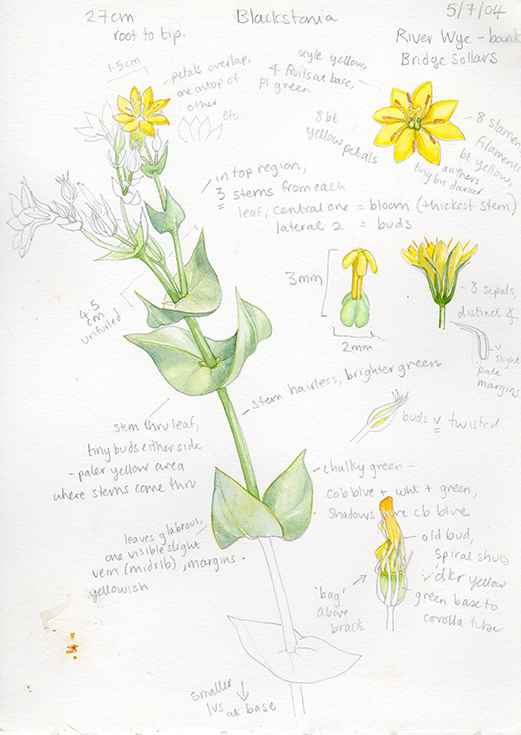 27cm
root to tip.
Blackstonia
5/7/04
River Wye - bank
Bridge Sollars
1.5cm
petals overlap,
one on top of
other
etc
style yellow,
4 fruits at base,
pl green
8 bt
yellow
petals
8 stamen
filaments
bt yellow,
anthers
tiny bit darker
in top region,
3 stems from each
leaf, central one = bloom (thickest stem)
lateral 2 = buds
3mm
2mm
8 sepals,
distinct &
v
slight
pale
margins
4.5
cm
unfurled
stem hairless, brighter green
buds v twisted
stem thru leaf,
tiny buds either side
- paler yellow area
where stems come thru
chalky green -
cob blue + wht + green,
shadows are cb blue
leaves glabrous,
one visible slight
vein (midrib), margins
yellowish
old bud,
spiral shut,
dkr yellow
green base to
corolla tube
'bag'
above
bracts
smaller
lvs at base